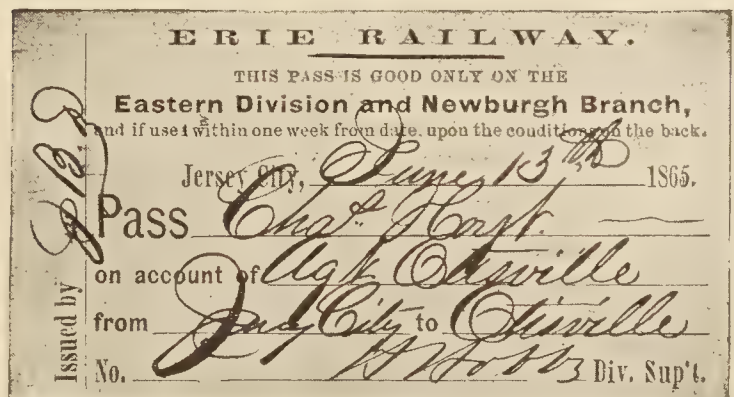 ERIE RAILWAY.
THIS PASS IS GOOD ONLY ON THE
Eastern Division and Newburgh Branch,
and if used within one week from date, upon the conditions on the back.
Jersey City, June 13th 1865.
Pass Chas. Hoyt.
on account of Agt Otisville
from Jersey City to Otisville
No. Div. Sup't.
Issued by